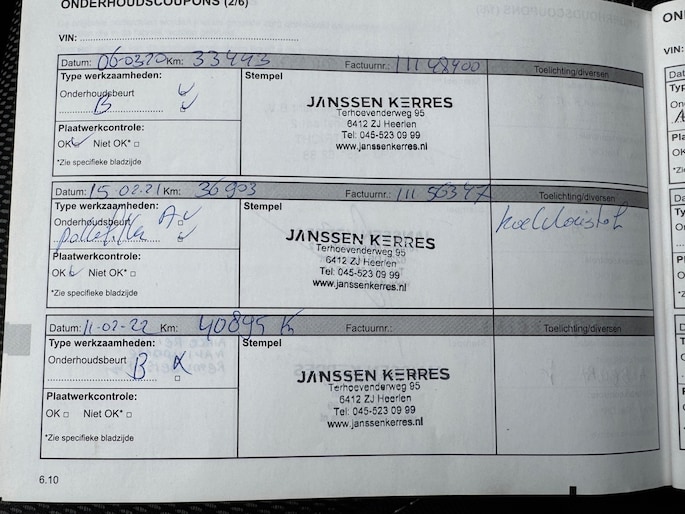 ONDERHOUDSCOUPONS (2/6)
VIN:
Datum: 06-0320 Km: 33443 Factuurnr.: 11148400 Toelichting/diversen
Type werkzaamheden: Stempel
Onderhoudsbeurt
B
JANSSEN KERRES
Terhoevenderweg 95
6412 ZJ Heerlen
Tel: 045-523 09 99
www.janssenkerres.nl
Plaatwerkcontrole:
OK Niet OK*
*Zie specifieke bladzijde
Datum: 15-02-21 Km: 36903 Factuurnr.: 11156347 Toelichting/diversen
Type werkzaamheden: Stempel
Onderhoudsbeurt A
pollefilter
koelvloeistof
JANSSEN KERRES
Terhoevenderweg 95
6412 ZJ Heerlen
Tel: 045-523 09 99
www.janssenkerres.nl
Plaatwerkcontrole:
OK Niet OK*
*Zie specifieke bladzijde
Datum: 11-02-22 Km: 40845 K Factuurnr.: Toelichting/diversen
Type werkzaamheden: Stempel
Onderhoudsbeurt
B
JANSSEN KERRES
Terhoevenderweg 95
6412 ZJ Heerlen
Tel: 045-523 09 99
www.janssenkerres.nl
Plaatwerkcontrole:
OK Niet OK*
*Zie specifieke bladzijde
6.10
VIN: